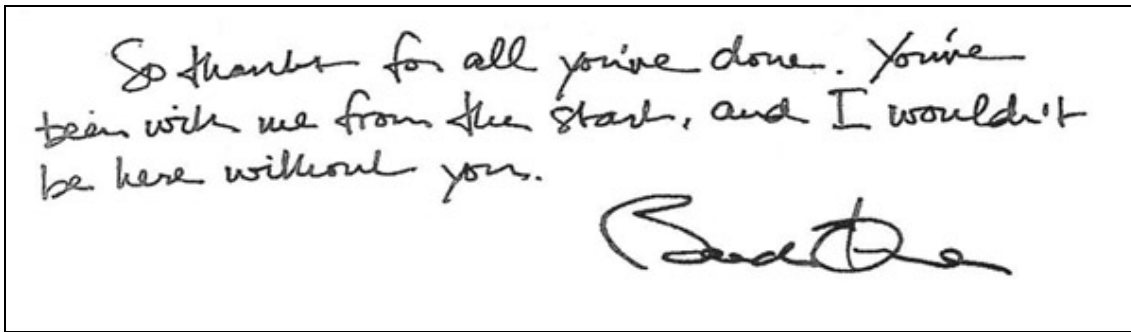 So thanks for all you've done. You've
been with me from the start, and I wouldn't
be here without you.